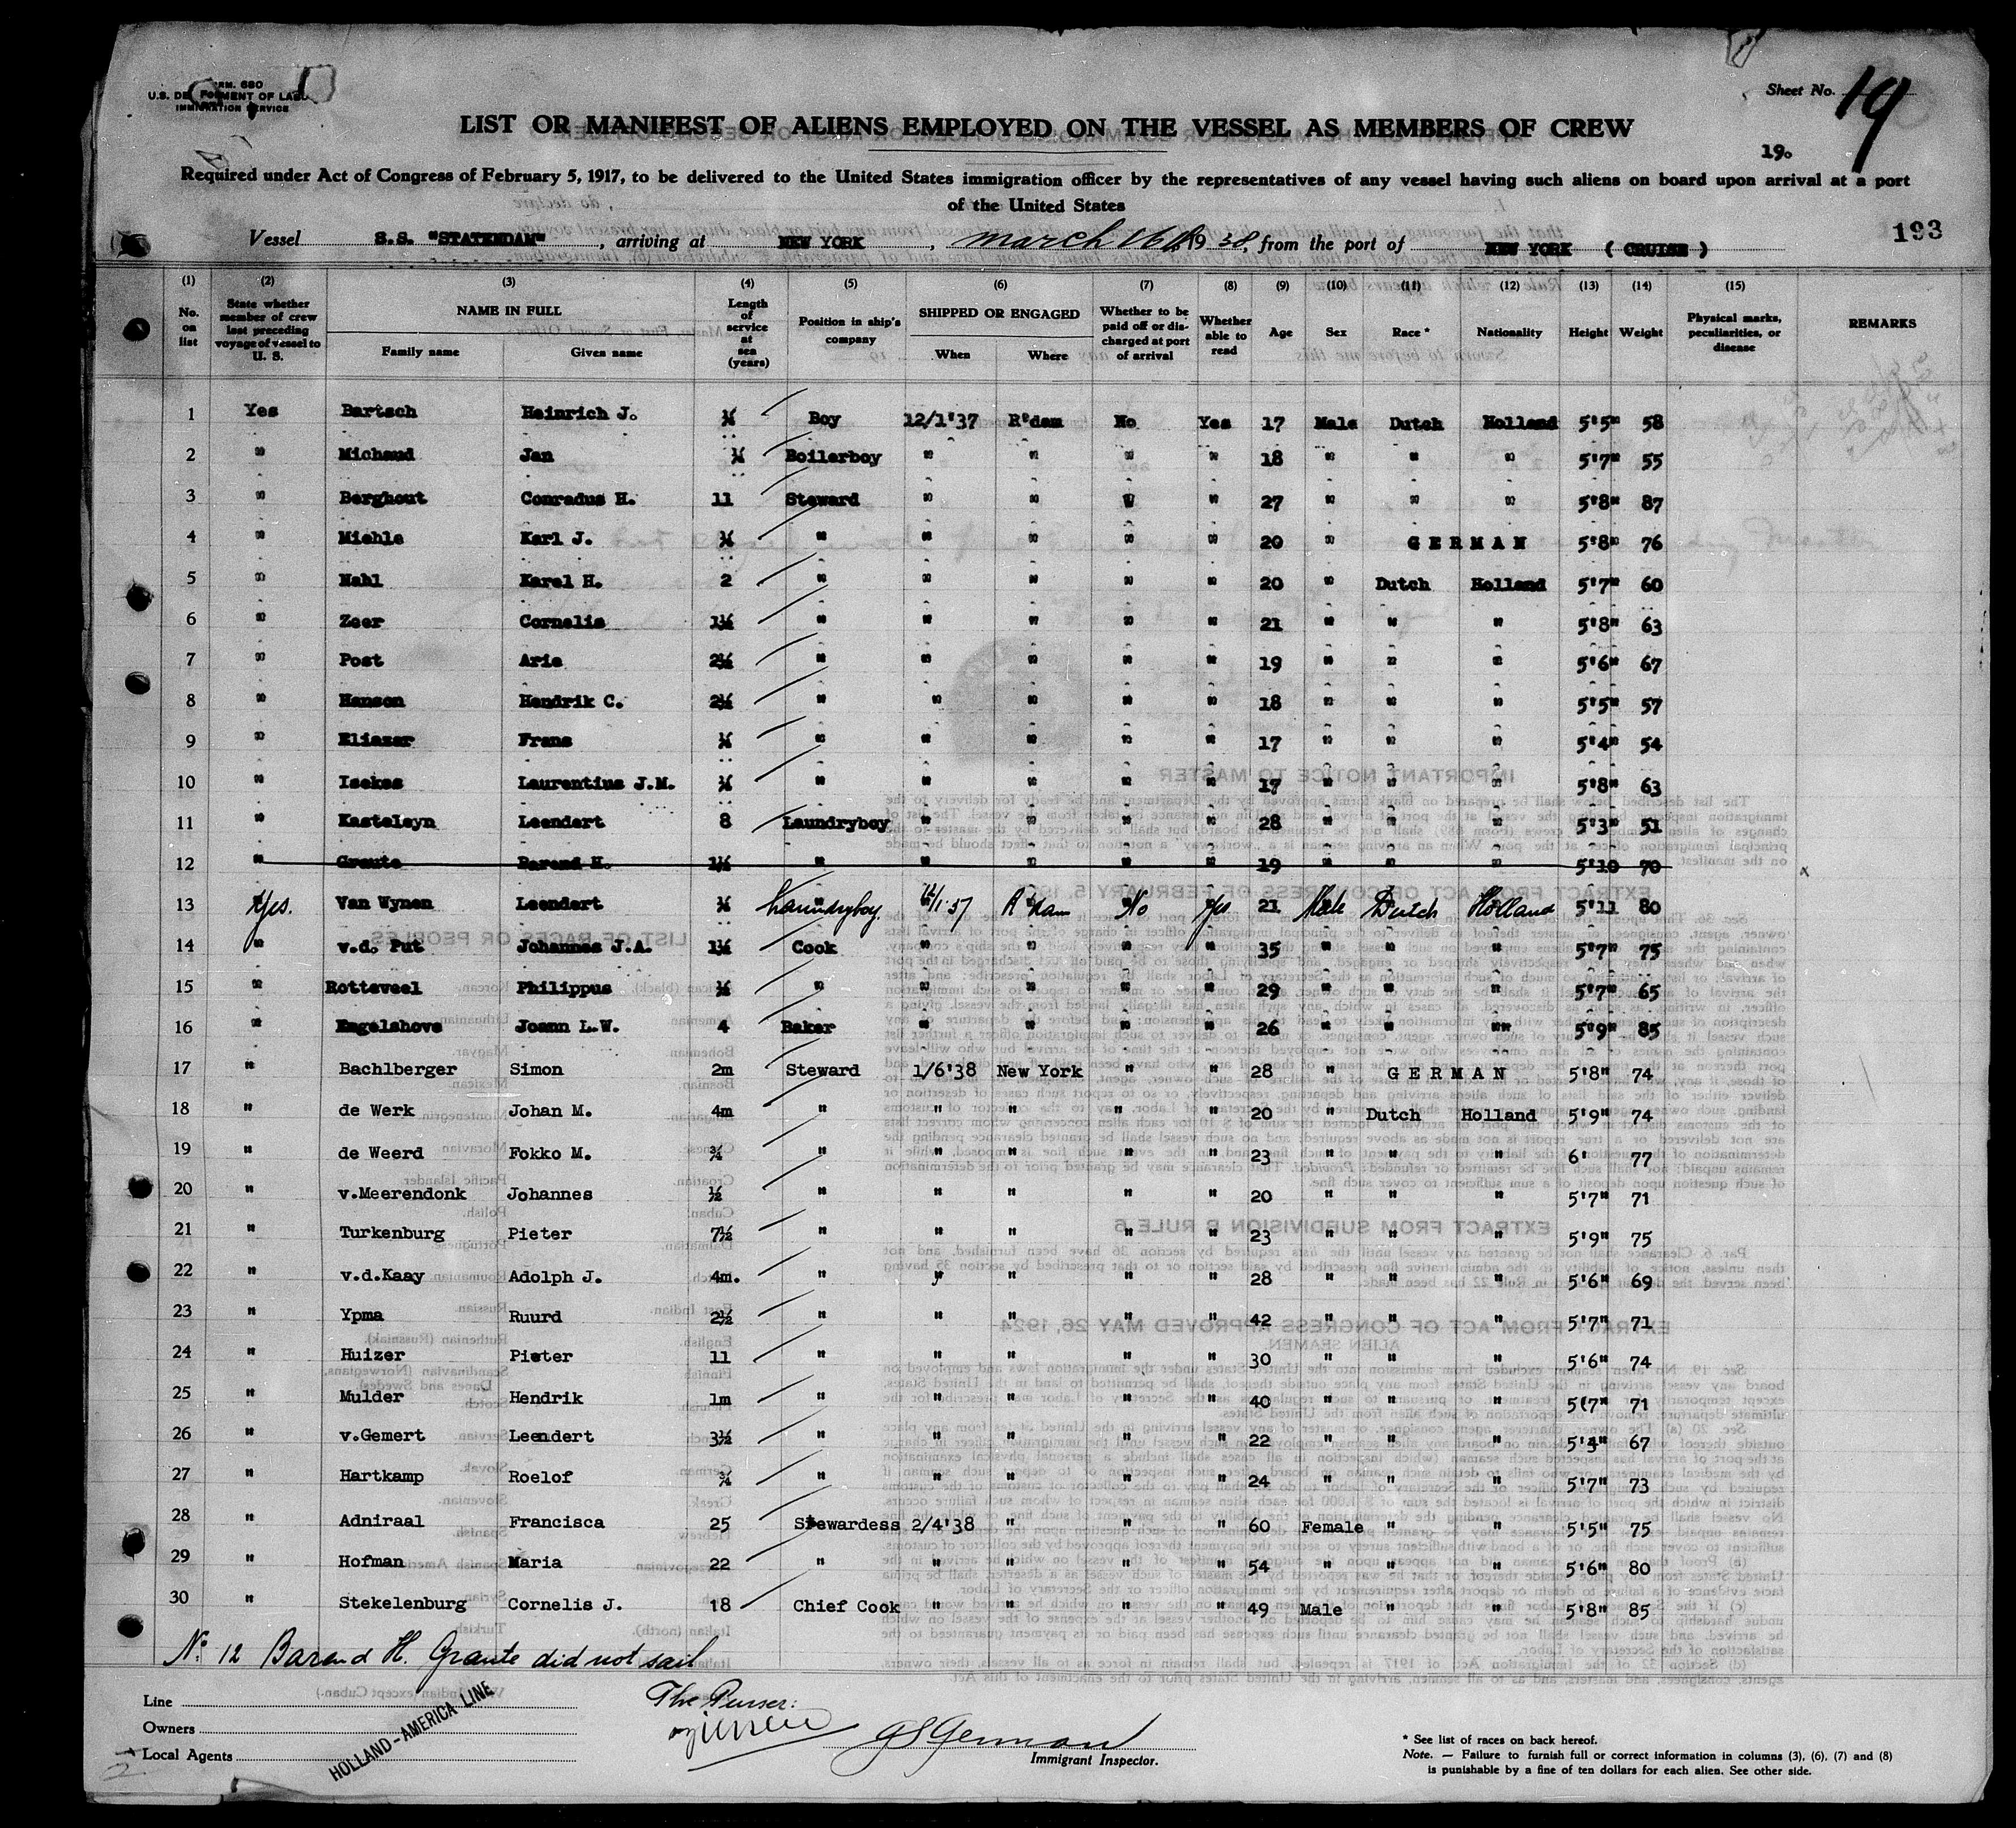 FORM 680
U.S. DEPARTMENT OF LABOR
IMMIGRATION SERVICE
Sheet No. 19
LIST OR MANIFEST OF ALIENS EMPLOYED ON THE VESSEL AS MEMBERS OF CREW
19.
Required under Act of Congress of February 5, 1917, to be delivered to the United States immigration officer by the representatives of any vessel having such aliens on board upon arrival at a port
of the United States
193
Vessel S.S. "STATENDAM", arriving at NEW YORK, March 16th 1938, from the port of NEW YORK ( CRUISE )
(1) (2) (3) (4) (5) (6) (7) (8) (9) (10) (11) (12) (13) (14) (15)
No. on list | State whether member of crew last preceding voyage of vessel to U. S. | NAME IN FULL Family name Given name | Length of service at sea (years) | Position in ship's company | SHIPPED OR ENGAGED When Where | Whether to be paid off or discharged at port of arrival | Whether able to read | Age | Sex | Race * | Nationality | Height | Weight | Physical marks, peculiarities, or disease | REMARKS
1 Yes Bartsch Heinrich J. Boy 12/1'37 R'dam No Yes 17 Male Dutch Holland 5'5" 58
2 " Michaud Jan Boilerboy " " " " 18 " " " 5'7" 55
3 " Berghout Conradus H. 11 Steward " " " " 27 " " " 5'8" 87
4 " Miehle Karl J. " " " " " 20 " GERMAN 5'8" 76
5 " Nahl Karel H. 2 " " " " " 20 " Dutch Holland 5'7" 60
6 " Zeer Cornelis 1½ " " " " " 21 " " " 5'8" 63
7 " Post Arie 2½ " " " " " 19 " " " 5'6" 67
8 " Hanson Hendrik C. 2½ " " " " " 18 " " " 5'5" 57
9 " Eliazer Frans " " " " " 17 " " " 5'4" 54
10 " Isekes Laurentius J.M. " " " " " 17 " " " 5'8" 63
11 " Kasteleyn Leendert 8 Laundryboy " " " " 28 " " " 5'3" 51
12 " Graute Barend H. 1½ " " " " " 19 " " " 5'10 70
13 Yes. Van Wynen Leendert Laundryboy 12/1'37 R'dam No Yes 21 Male Dutch Holland 5'11 80
14 " v.d. Put Johannes J.A. 1½ Cook " " " " 35 " " " 5'7" 75
15 " Rotteveel Philippus ½ " " " " " 29 " " " 5'7" 65
16 " Engelshove Joann L.W. 4 Baker " " " " 26 " " "" 5'9" 85
17 " Bachlberger Simon 2m Steward 1/6'38 New York " " 28 " GERMAN 5'8" 74
18 " de Werk Johan M. 4m " " " " " 20 " Dutch Holland 5'9" 74
19 " de Weerd Fokko M. ¾ " " " " " 23 " " " 6' 77
20 " v.Meerendonk Johannes ½ " " " " " 20 " " " 5'7" 71
21 " Turkenburg Pieter 7½ " " " " " 23 " " " 5'9" 75
22 " v.d.Kaay Adolph J. 4m. " " " " " 28 " " " 5'6" 69
23 " Ypma Ruurd 2½ " " " " " 42 " " " 5'7" 71
24 " Huizer Pieter 11 " " " " " 30 " " " 5'6" 74
25 " Mulder Hendrik 1m " " " " " 40 " " " 5'7" 71
26 " v.Gemert Leendert 3½ " " " " " 22 " " " 67
27 " Hartkamp Roelof ¾ " " " " " 24 " " " 5'7" 73
28 " Adniraal Francisca 25 Stewardess 2/4'38 " " " 60 Female " " 5'5" 75
29 " Hofman Maria 22 " " " " " 54 " " " 5'6" 80
30 " Stekelenburg Cornelis J. 18 Chief Cook " " " " 49 Male " " 5'8" 85
No. 12 Barend H. Graute did not sail
Line
Owners
Local Agents
HOLLAND-AMERICA LINE
The Purser:
Immigrant Inspector.
* See list of races on back hereof.
Note. — Failure to furnish full or correct information in columns (3), (6), (7) and (8)
is punishable by a fine of ten dollars for each alien. See other side.